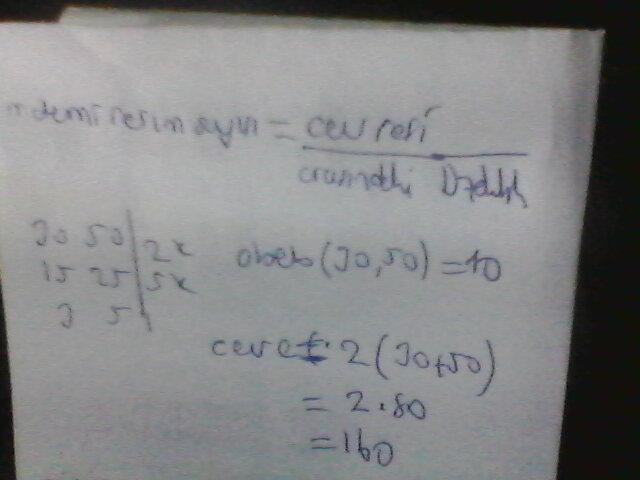 sayısı = çevresi
aradaki Uzaklık
30 50 | 2x
15 25 | 5x
3 5
obeb(30,50) = 10
çevre: 2(30+50)
= 2.80
= 160